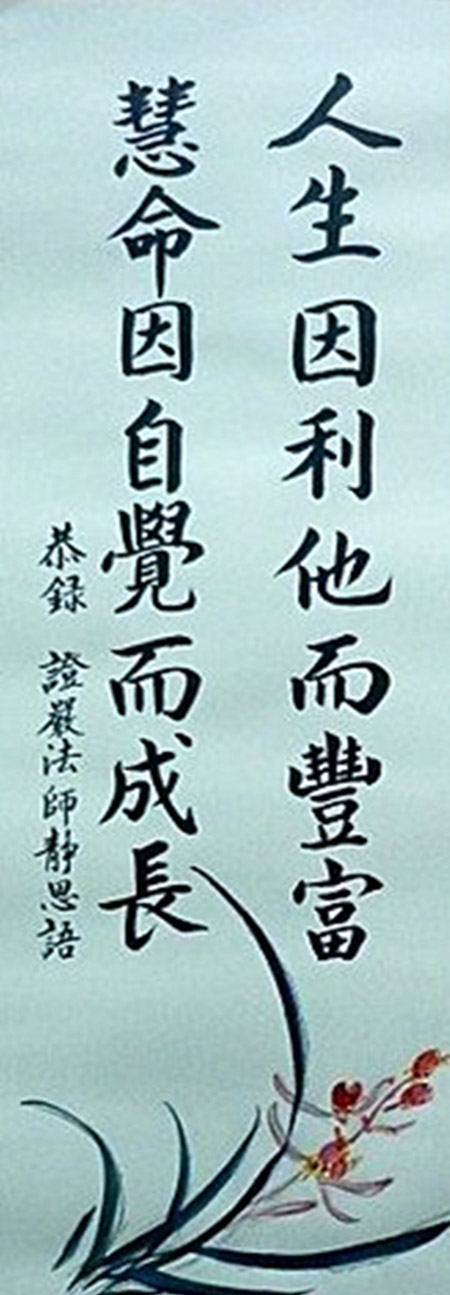 人生因利他而豐富
慧命因自覺而成長
恭録 證嚴法師靜思語